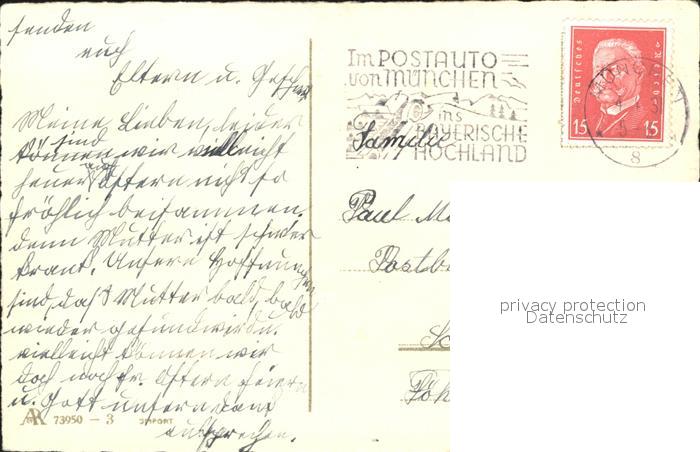 senden
euch
Eltern u. Geschw.
Meine Lieben, leider
sind
können wir vielleicht
heuer Ostern nicht so
fröhlich beisammen.
denn Mutter ist schwer
krank. Unsere Hoffnungen
sind, das Mutter bald, bald
wieder gesund wird u.
vielleicht können wir
doch noch fr. Ostern feiern
u. Gott unsern Dank
aussprechen.
AR 73950 - 3 IMPORT
Im POSTAUTO
von MÜNCHEN
ins
BAYERISCHE
HOCHLAND
Deutsches Reich
15 15
MÜNCHEN
8
Familie
Paul
privacy protection
Datenschutz